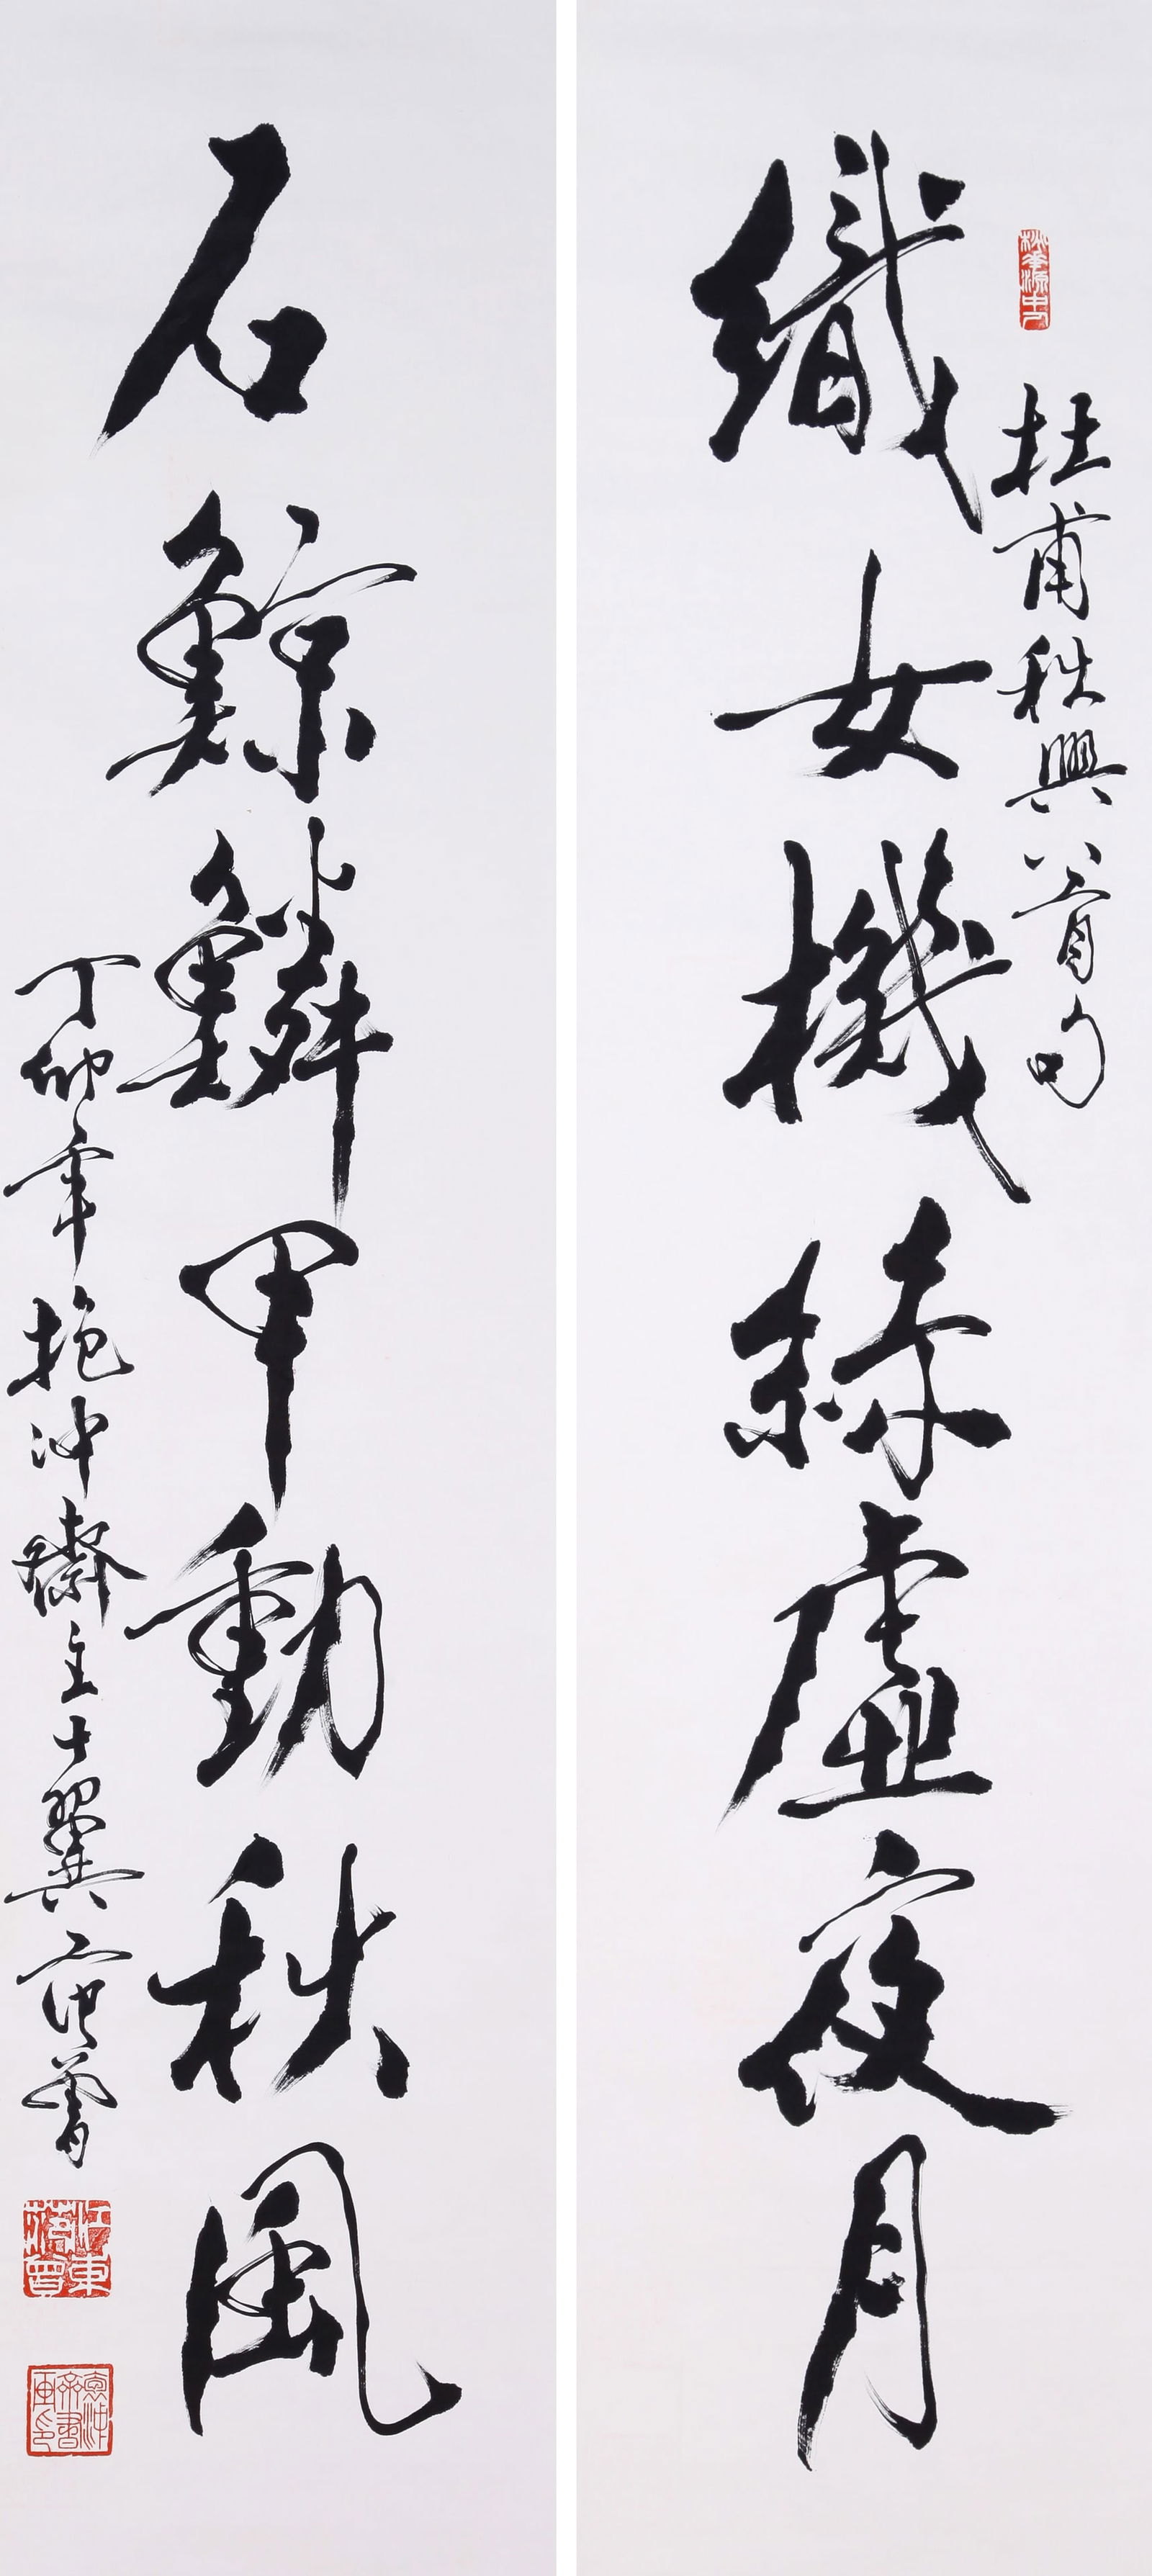 杜甫秋興八首句
織女機絲虛夜月
石鯨鱗甲動秋風
丁卯年抱沖齋主十翼范曾